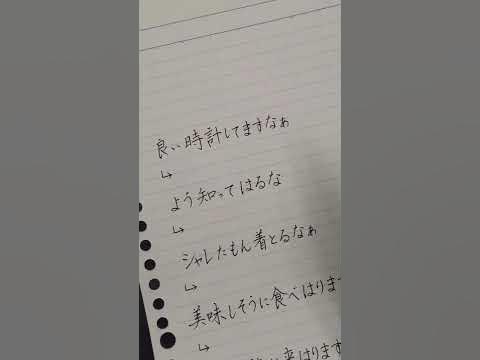 良い時計してますなぁ
↳
よう知ってはるな
↳
シャレたもん着とるなぁ
↳
美味しそうに食べはりま
↳
来はります